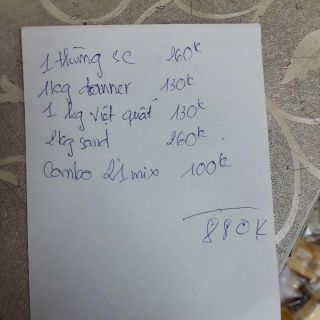 1 thùng sc 260k
1kg danner 130k
1 kg việt quất 130k
2kg sand 260k
Combo 2'1 mix 100k
880K